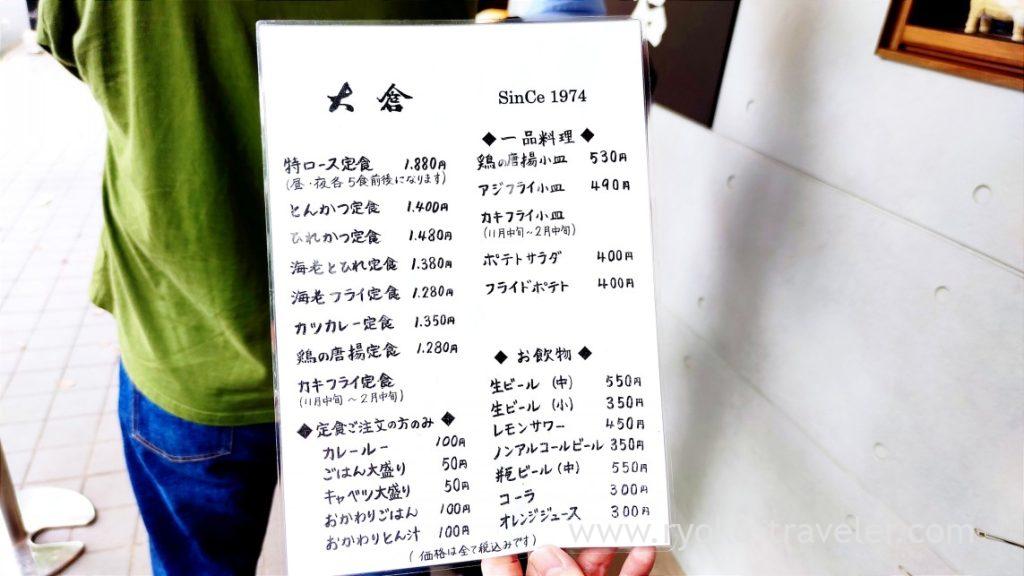 大倉
SinCe 1974
特ロース定食 1.880円
(昼・夜各5食前後になります)
とんかつ定食 1.400円
ひれかつ定食 1.480円
海老とひれ定食 1.380円
海老フライ定食 1.280円
カツカレー定食 1.350円
鶏の唐揚定食 1.280円
カキフライ定食
(11月中旬～2月中旬)
◆定食ご注文の方のみ◆
カレールー 100円
ごはん大盛り 50円
キャベツ大盛り 50円
おかわりごはん 100円
おかわりとん汁 100円
(価格は全て税込みです)
◆一品料理◆
鶏の唐揚小皿 530円
アジフライ小皿 490円
カキフライ小皿
(11月中旬～2月中旬)
ポテトサラダ 400円
フライドポテト 400円
◆お飲物◆
生ビール (中) 550円
生ビール (小) 350円
レモンサワー 450円
ノンアルコールビール 350円
瓶ビール (中) 550円
コーラ 300円
オレンジジュース 300円